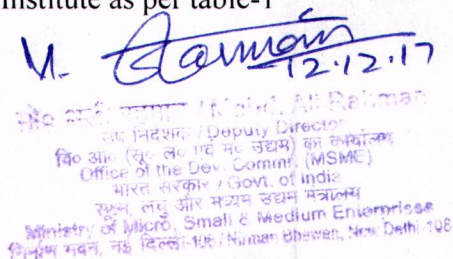 Institute as per table-1
12.12.17
मो० अली रहमान / Mohd. Ali Rahman
उप निदेशक / Deputy Director
वि० आ० (सू० ल० एवं म० उद्यम) का कार्यालय
Office of the Dev. Commr. (MSME)
भारत सरकार / Govt. of India
सूक्ष्म, लघु और मध्यम उद्यम मंत्रालय
Ministry of Micro, Small & Medium Enterprises
निर्माण भवन, नई दिल्ली-108 / Nirman Bhawan, New Delhi-108